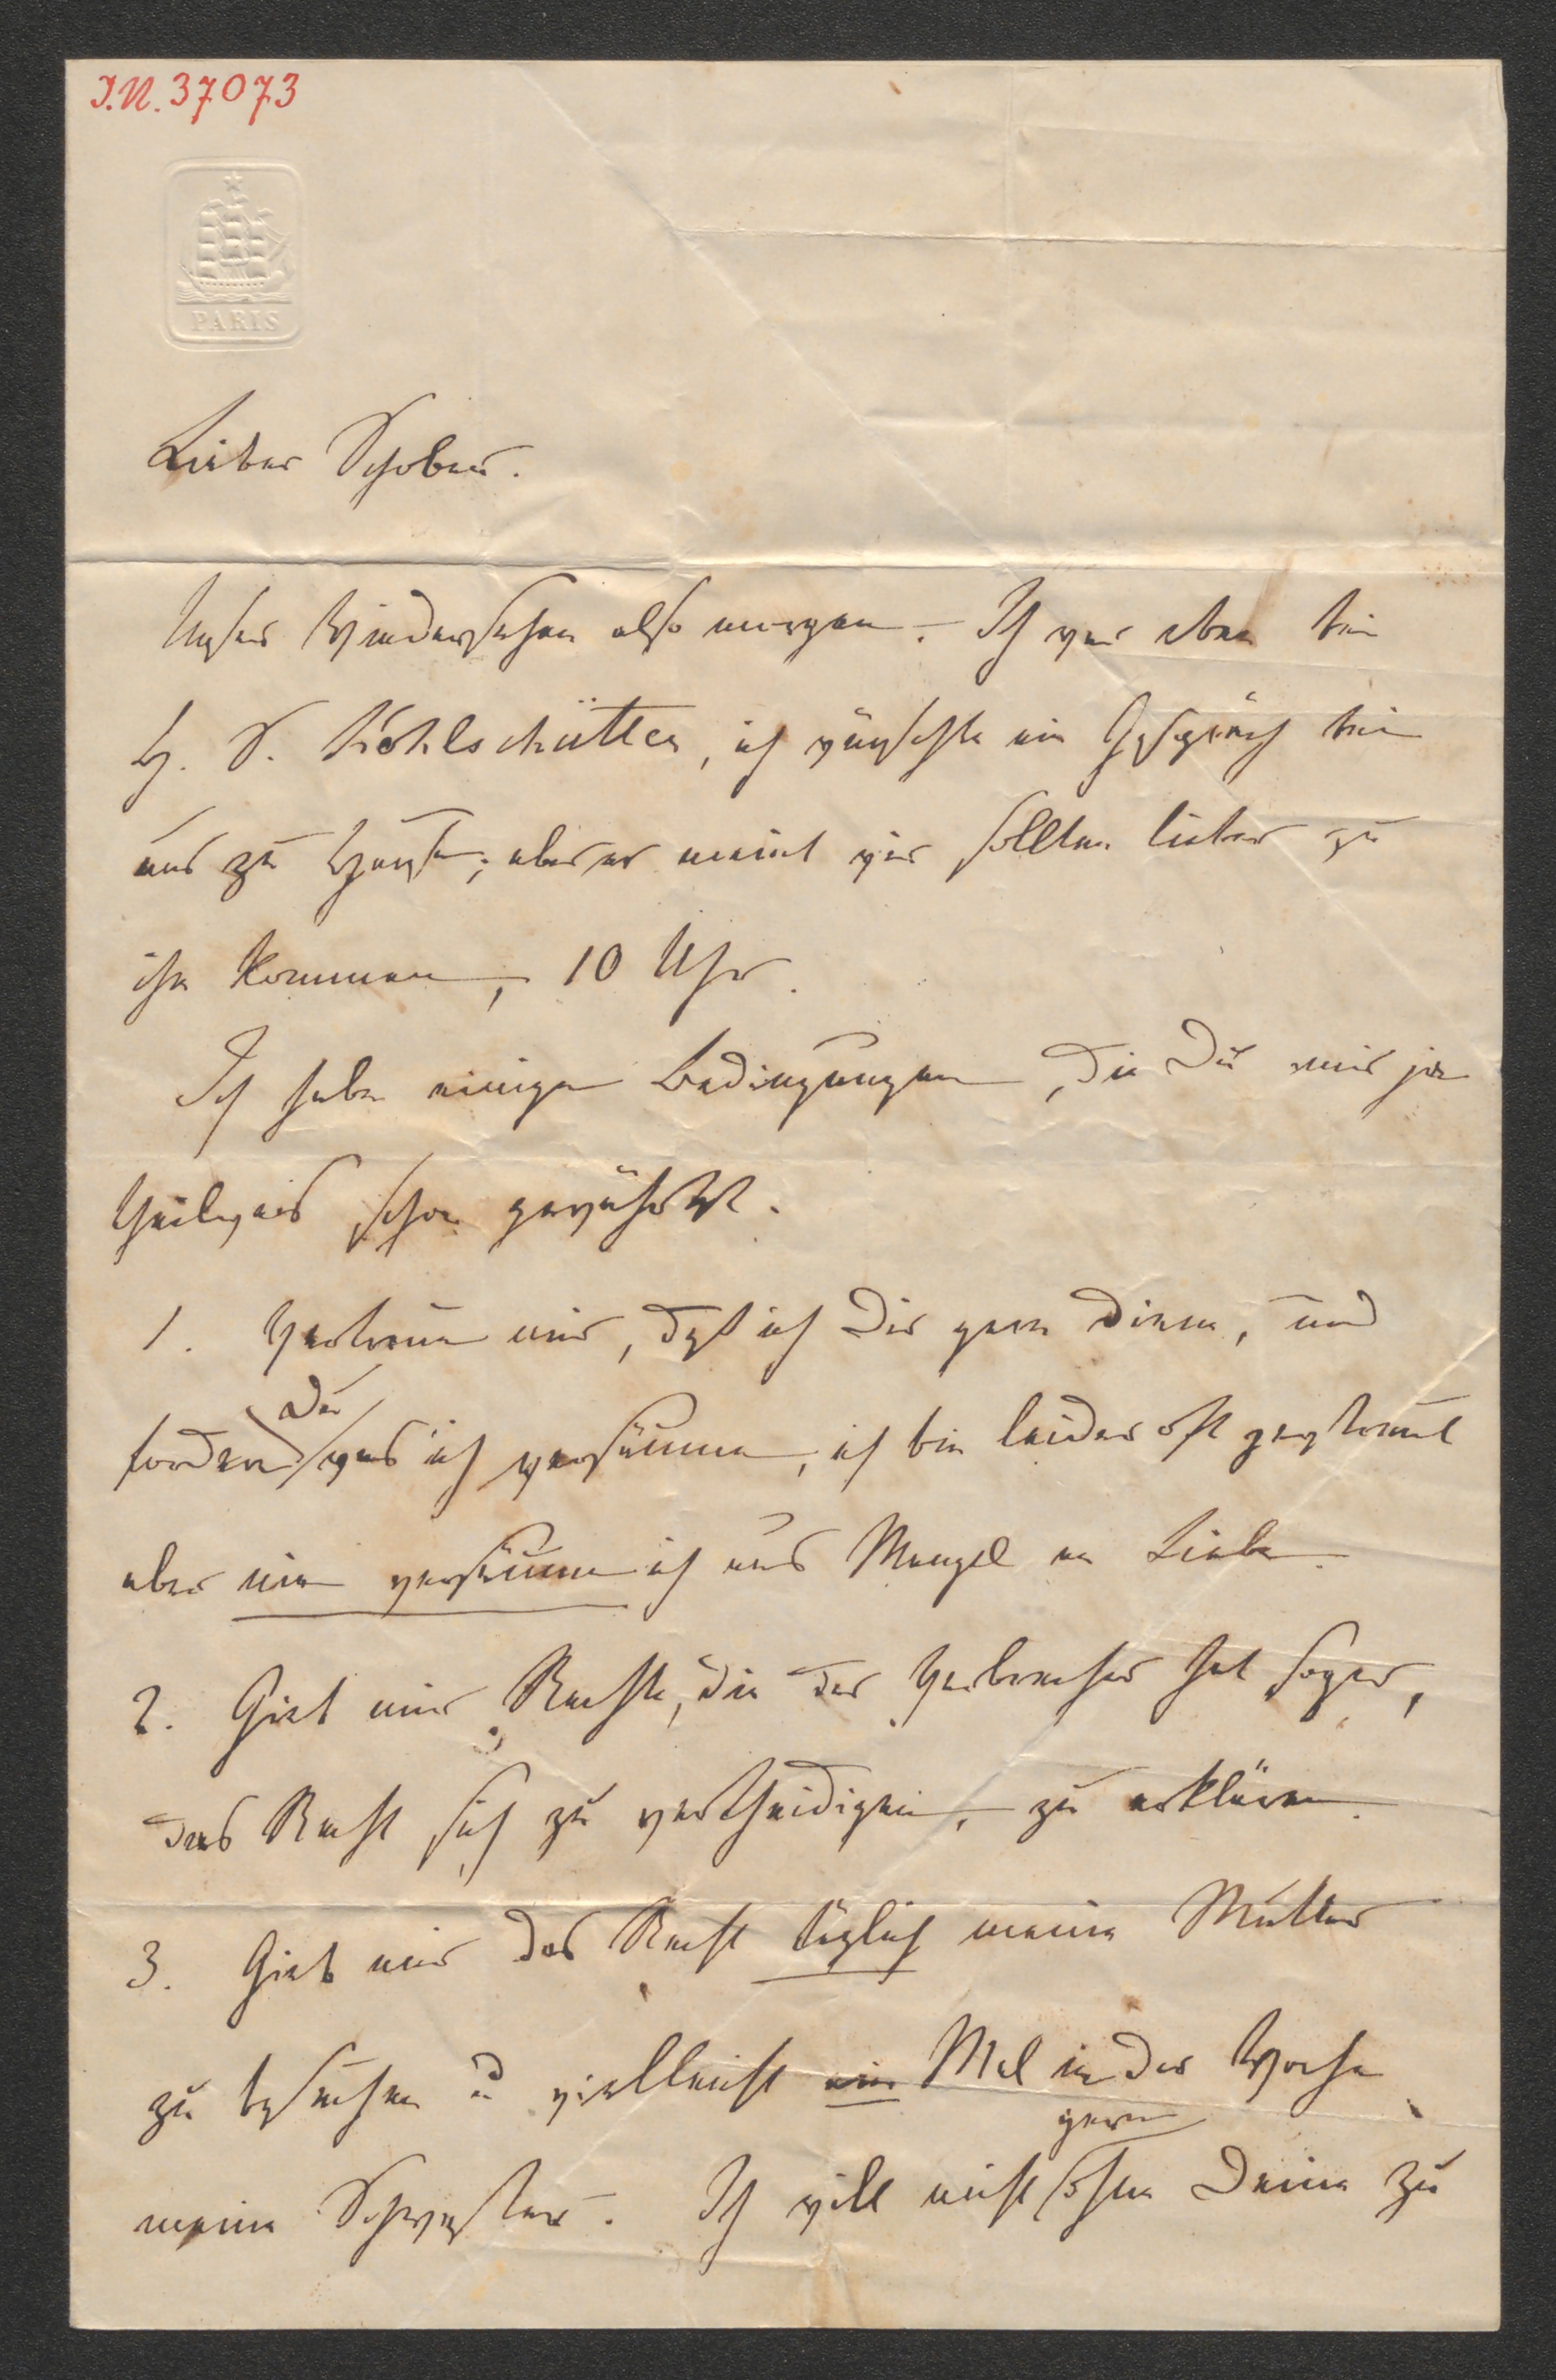 I.N. 37073
PARIS
Lieber Schober.
Unser Wiedersehen also morgen. Ich war eben bei
H. D. Kohlschütter, ich wünschte ein Gespräch bei
uns zu Hause; aber er meint wir sollten lieber zu
ihm kommen, 10 Uhr.
Ich habe einige Bedingungen, die Du mir ja
theilweis schon gewährst.
1. Vertraue mir, daß ich Dir gern diene, und
Du
fordere was ich versäume, ich bin leider oft zerstreut
aber nie versäume ich aus Mangel an Liebe.
2. Giet mir Rechte, die der Verbrecher hat sogar,
das Recht sich zu vertheidigen, zu erklären.
3. Gieb mir das Recht täglich meine Mutter
zu besuchen u vielleicht ein Mal in der Woche
gern
meine Schwester. Ich will nicht ohne Deine zu